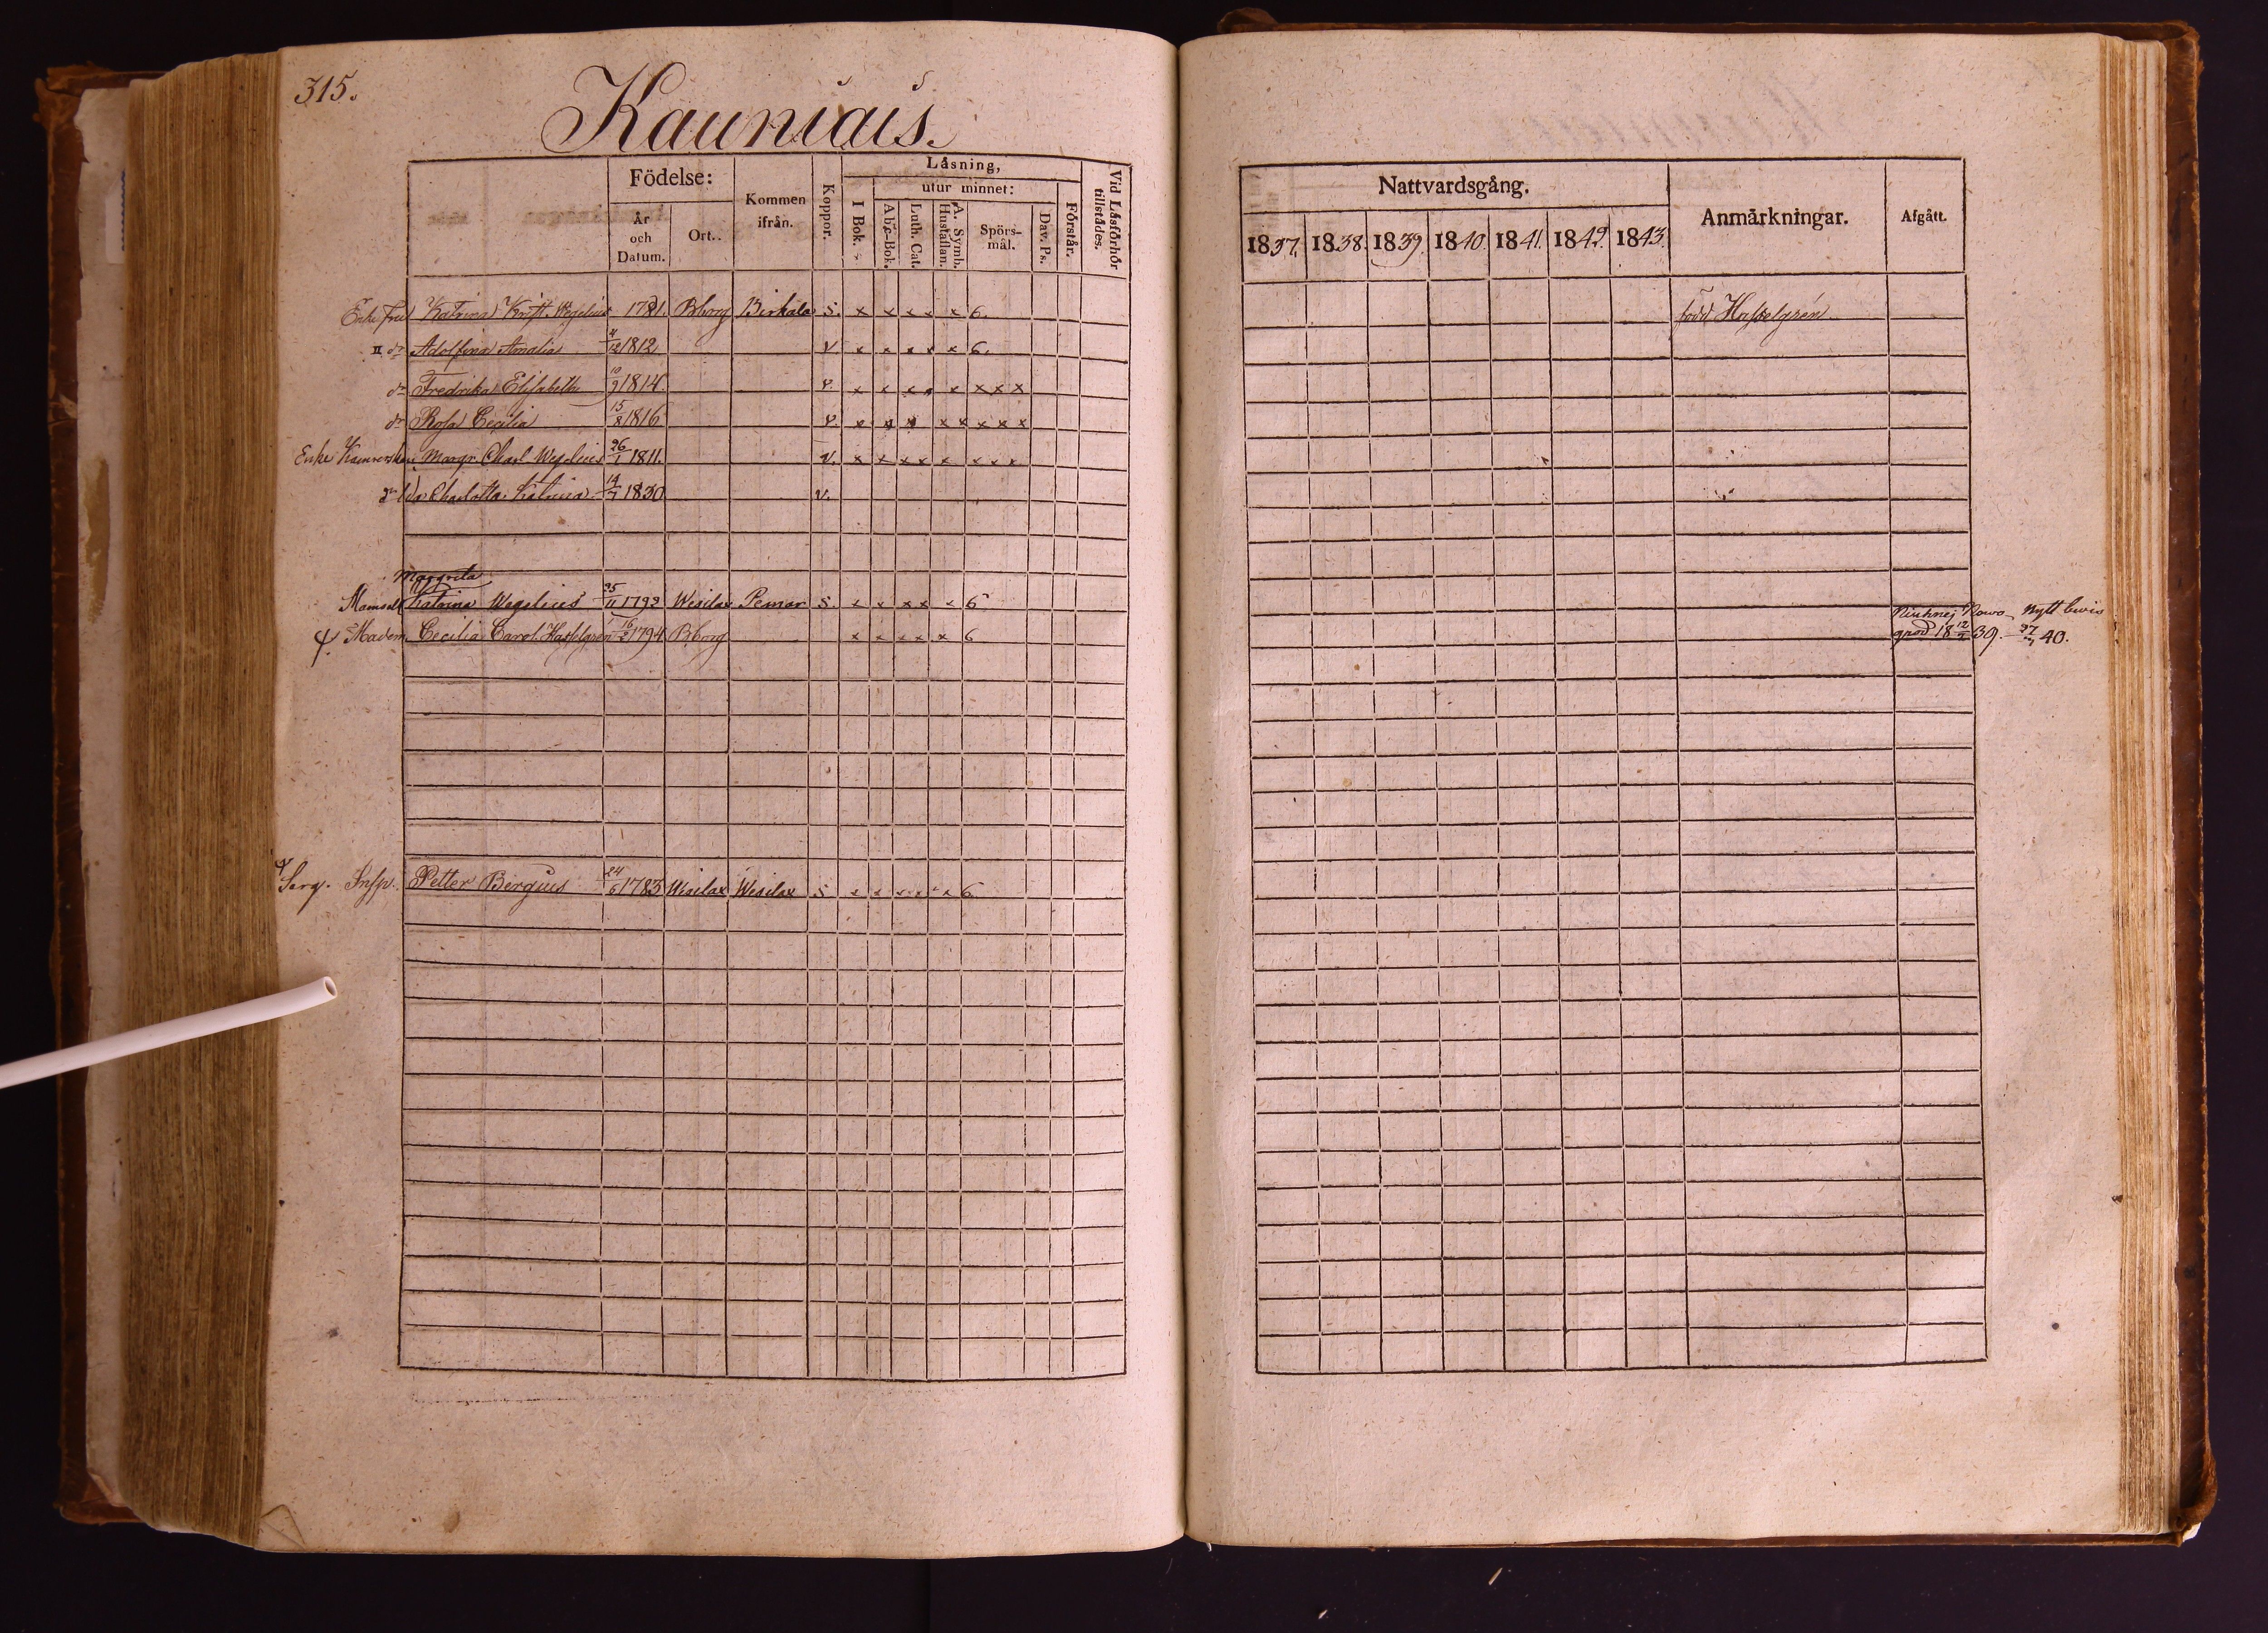 315.
Kauniais.
Födelse:
År och Datum.
Ort.
Kommen ifrån.
Koppor.
Läsning,
utur minnet:
I Bok.
Abc-Bok.
Luth. Cat.
A. Symb. Hustaflan.
Spörs-mål.
Dav. Ps.
Förstår.
Vid Läsförhör tillstådes.
Enke Fru Katrina Krist. Wegelius 1781. Bborg Birkala s. x x x x x 6.
II dr Adolfina Amalia 4/12 1812 v x x x x x 6.
dr Fredrika Elisabeth 10/9 1814. v. x x x x x x x x
dr Rosa Cecilia 15/8 1816 v. x x x x x x x x
Enke Margr. Charl. Wegelius 26/1 1811. v. x x x x x x x x
dr Ida Charlotta Katrina 14/7 1830 v.
Margreta
Mamsell Katrina Wegelius 25/11 1792 Wesilax Pemar s. x x x x x 6
Madem. Cecilia Carol. Hasselgren 16/2 1794 Bborg x x x x x 6
Serg. Insp. Petter Bergius 24/6 1783 Wesilax Wesilax s x x x x x x 6.
Nattvardsgång.
Anmärkningar.
Afgått.
1837. 1838. 1839. 1840. 1841. 1842. 1843.
född Hasselgrén
Nytt bevis
18 12/2 39. 40.